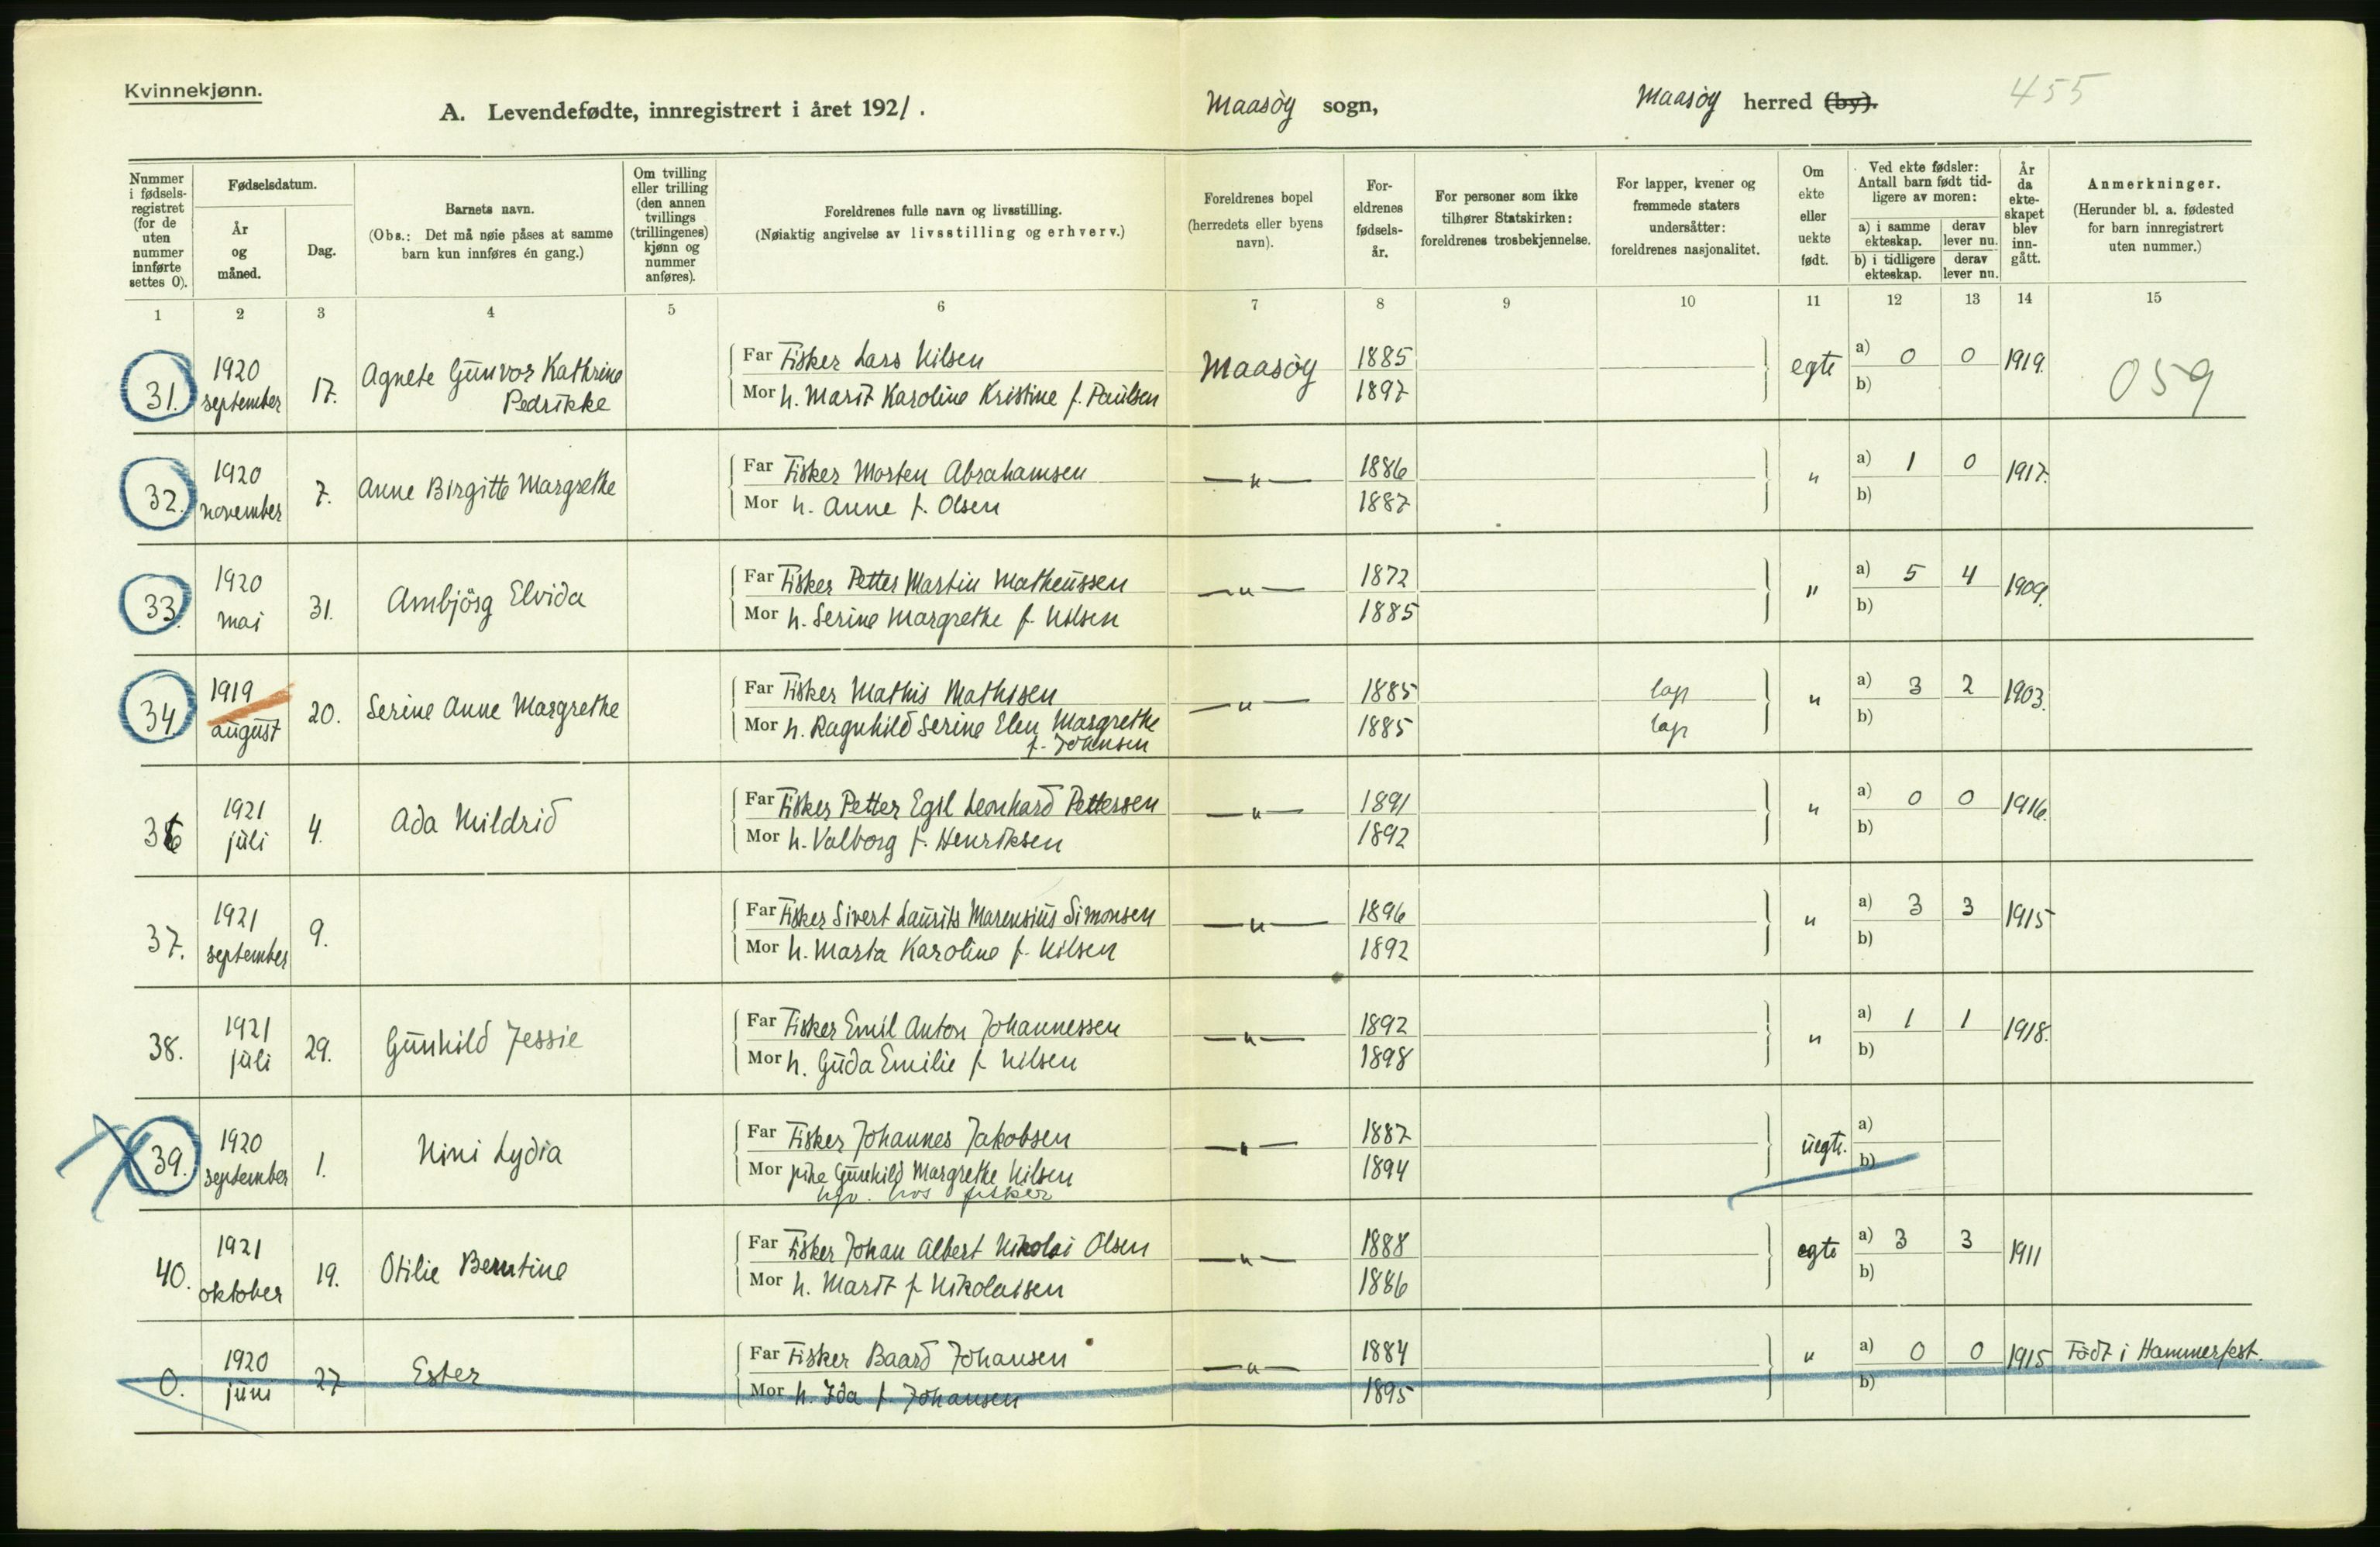 Kvinnekjønn.
A. Levendefødte, innregistrert i året 1921.
Maasöy sogn,
Maasöy herred (by).
455
Nummer i fødsels-registret (for de uten nummer innførte settes 0).
Fødselsdatum.
År og måned.
Dag.
Barnets navn.
(Obs.: Det må nøie påses at samme barn kun innføres én gang.)
Om tvilling eller trilling (den annen tvillings (trillingenes) kjønn og nummer anføres).
Foreldrenes fulle navn og livsstilling.
(Nøiaktig angivelse av livsstilling og erhverv.)
Foreldrenes bopel
(herredets eller byens navn).
For-eldrenes fødsels-år.
For personer som ikke tilhører Statskirken: foreldrenes trosbekjennelse.
For lapper, kvener og fremmede staters undersåtter: foreldrenes nasjonalitet.
Om ekte eller uekte født.
Ved ekte fødsler: Antall barn født tid-ligere av moren:
a) i samme ekteskap.
derav lever nu.
b) i tidligere ekteskap.
derav lever nu.
År da ekte-skapet blev inn-gått.
Anmerkninger.
(Herunder bl. a. fødested for barn innregistrert uten nummer.)
1 2 3 4 5 6 7 8 9 10 11 12 13 14 15
31. 1920 september 17. Agnete Gunvor Kathrine Pedrikke Far Fisker Lars Nilsen Maasöy 1885 egte a) 0 0 1919. 059
Mor h. Marit Karoline Kristine f. Paulsen 1897 b)
32. 1920 november 7. Anne Birgitte Margrethe Far Fisker Morten Abrahamsen —"— 1886 " a) 1 0 1917.
Mor h. Anne f. Olsen 1887 b)
33. 1920 mai 31. Ambjörg Elvida Far Fisker Petter Martin Matheussen —"— 1872 " a) 5 4 1909.
Mor h. Serine Margrethe f. Nilsen 1885 b)
34. 1919 august 20. Serine Anne Margrethe Far Fisker Mathis Mathisen —"— 1885 lap " a) 3 2 1903.
Mor h. Ragnhild Serine Elen Margrethe f. Johnsen 1885 lap b)
36 1921 juli 4. Ada Mildrid Far Fisker Petter Egil Leonhard Pettersen —"— 1891 " a) 0 0 1916.
Mor h. Valborg f. Henriksen 1892 b)
37. 1921 september 9. Far Fisker Sivert Laurits Marensius Simonsen —"— 1896 " a) 3 3 1915
Mor h. Marta Karoline f. Nilsen 1892 b)
38. 1921 juli 29. Gunhild Jessie Far Fisker Emil Anton Johannessen —"— 1892 " a) 1 1 1918.
Mor h. Guda Emilie f Nilsen 1898 b)
39. 1920 september 1. Nini Lydia Far Fisker Johannes Jakobsen —"— 1887 uegte. a)
Mor pike Gunhild Margrethe Nilsen 1894 b)
hos fisker
40. 1921 oktober 19. Otilie Berntine Far Fisker Johan Albert Nikolai Olsen —"— 1888 egte a) 3 3 1911
Mor h. Marit f Nikolaisen 1886 b)
0. 1920 juni 27 Ester Far Fisker Baard Johansen —"— 1884 " a) 0 0 1915 Födt i Hammerfest.
Mor h. Ida f. Johansen 1895 b)